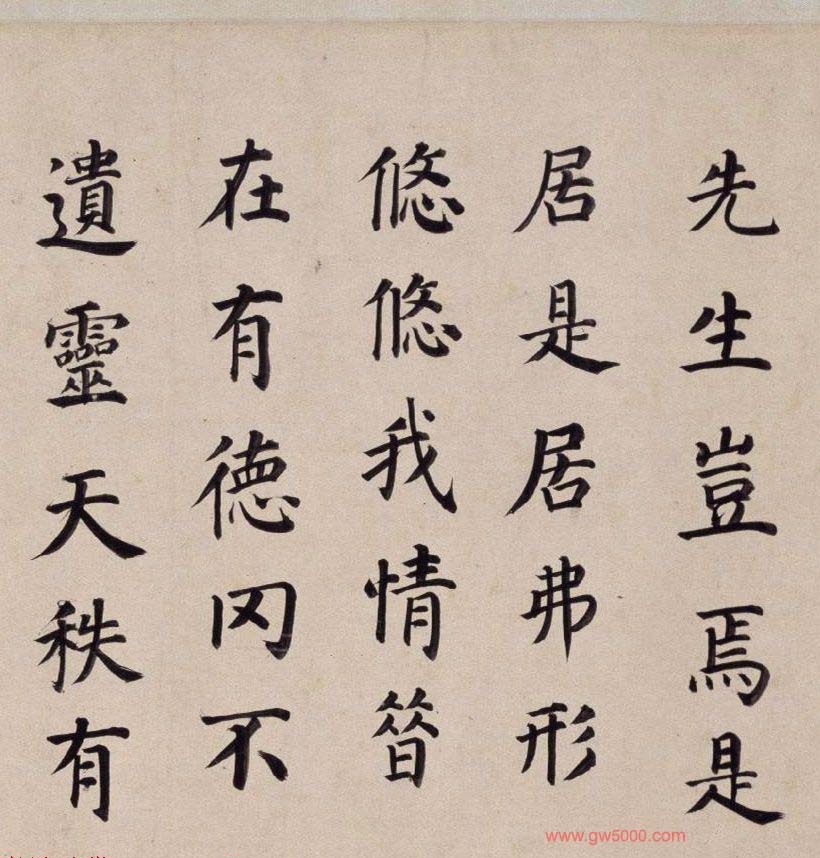 先生豈焉是
居是居弗形
悠悠我情昔
在有德冈不
遺靈天秩有
www.gw5000.com